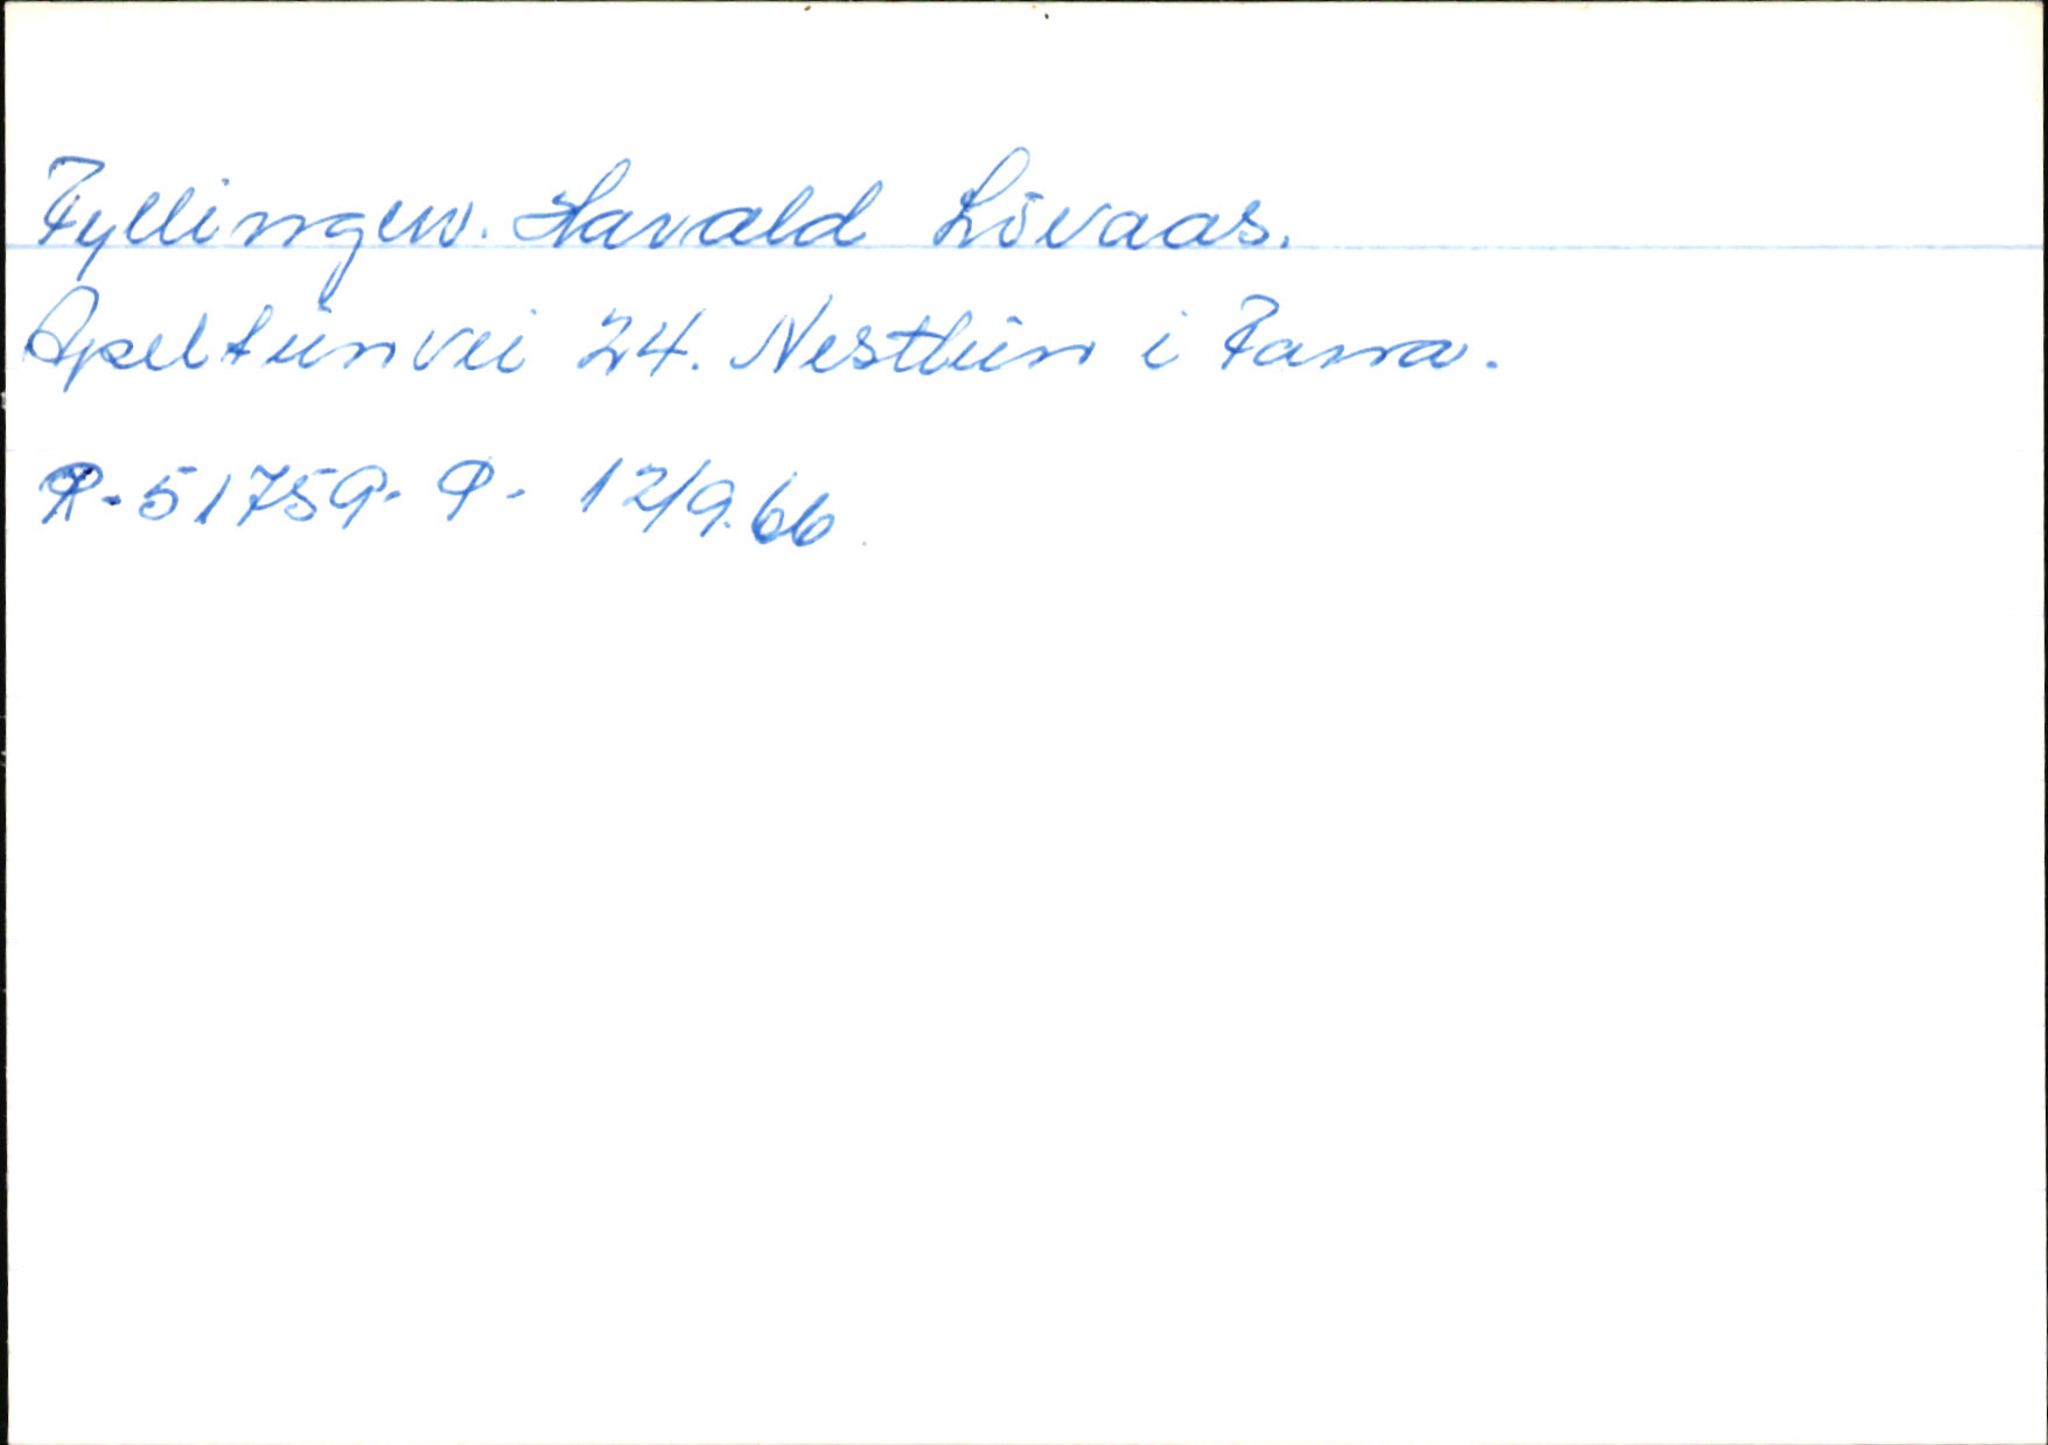 Fyllingen. Harald Lövaas.
Apeltunvei 24. Nesttun i Fana.
R-51759. P- 12/9.66